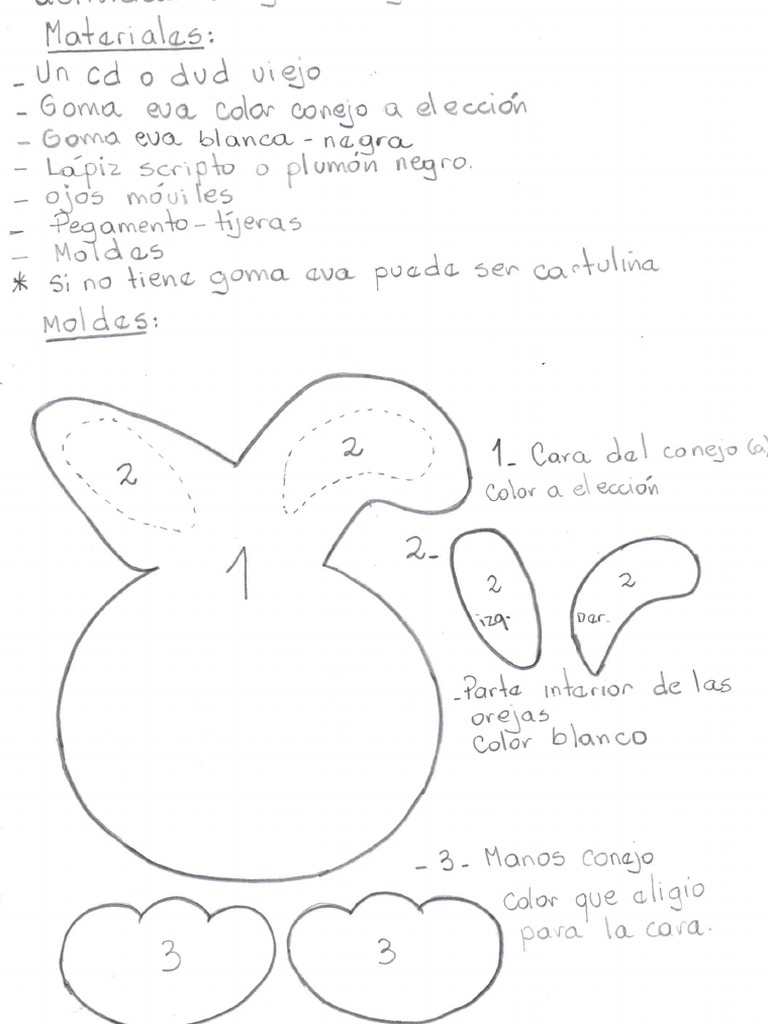 Materiales:
- Un cd o dvd viejo
- Goma eva color conejo a elección
- Goma eva blanca - negra
- Lápiz scripto o plumón negro.
- ojos móviles
- Pegamento - tijeras
- Moldes
* Si no tiene goma eva puede ser cartulina
Moldes:
2
2
1- Cara del conejo (a)
Color a elección
1
2-
2
izq.
2
Der.
- Parte interior de las
orejas
Color blanco
- 3- Manos conejo
Color que eligio
para la cara.
3
3